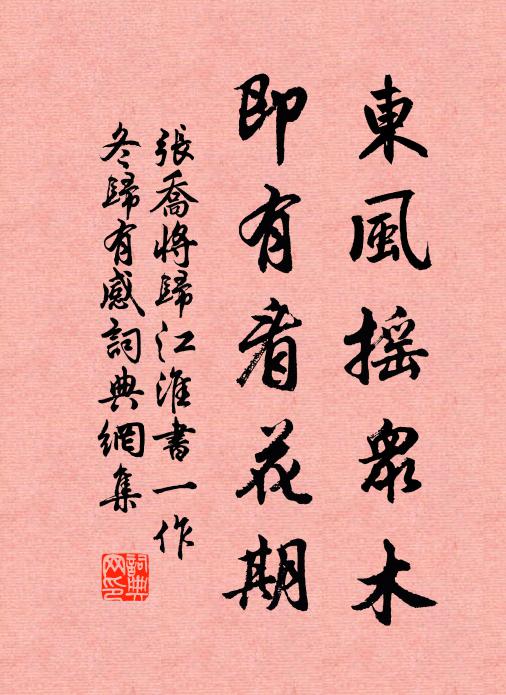 東風搖衆木
即有看花期
張喬將歸江淮書一作
冬歸有感詞典網集
詞典
网印